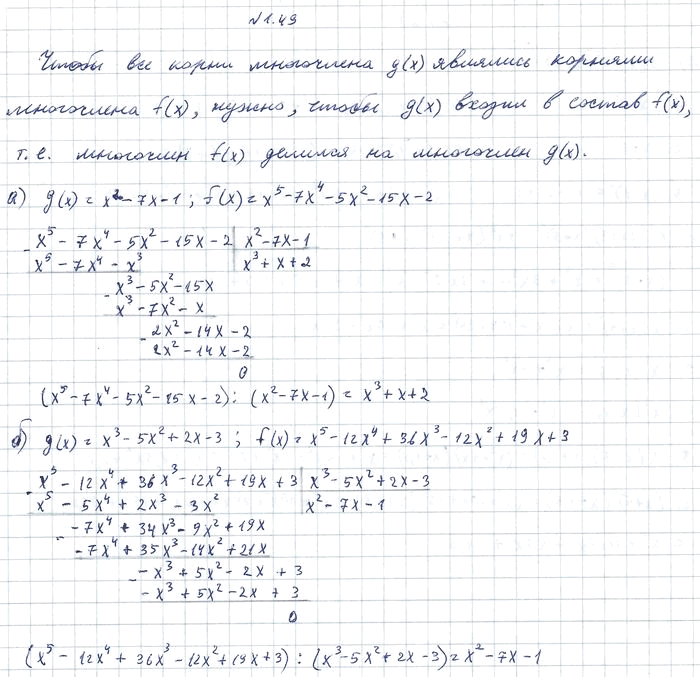 №1.49
Чтобы все корни многочлена g(x) являлись корнями
многочлена f(x), нужно, чтобы g(x) входил в состав f(x),
т.е. многочлен f(x) делился на многочлен g(x).
а) g(x) = x² - 7x - 1 ; f(x) = x⁵ - 7x⁴ - 5x² - 15x - 2
- x⁵ - 7x⁴ - 5x² - 15x - 2 | x² - 7x - 1
x⁵ - 7x⁴ - x³ | x³ + x + 2
- x³ - 5x² - 15x
x³ - 7x² - x
- 2x² - 14x - 2
2x² - 14x - 2
0
(x⁵ - 7x⁴ - 5x² - 15x - 2) : (x² - 7x - 1) = x³ + x + 2
б) g(x) = x³ - 5x² + 2x - 3 ; f(x) = x⁵ - 12x⁴ + 36x³ - 12x² + 19x + 3
- x⁵ - 12x⁴ + 36x³ - 12x² + 19x + 3 | x³ - 5x² + 2x - 3
x⁵ - 5x⁴ + 2x³ - 3x² | x² - 7x - 1
- -7x⁴ + 34x³ - 9x² + 19x
-7x⁴ + 35x³ - 14x² + 21x
- -x³ + 5x² - 2x + 3
-x³ + 5x² - 2x + 3
0
(x⁵ - 12x⁴ + 36x³ - 12x² + 19x + 3) : (x³ - 5x² + 2x - 3) = x² - 7x - 1